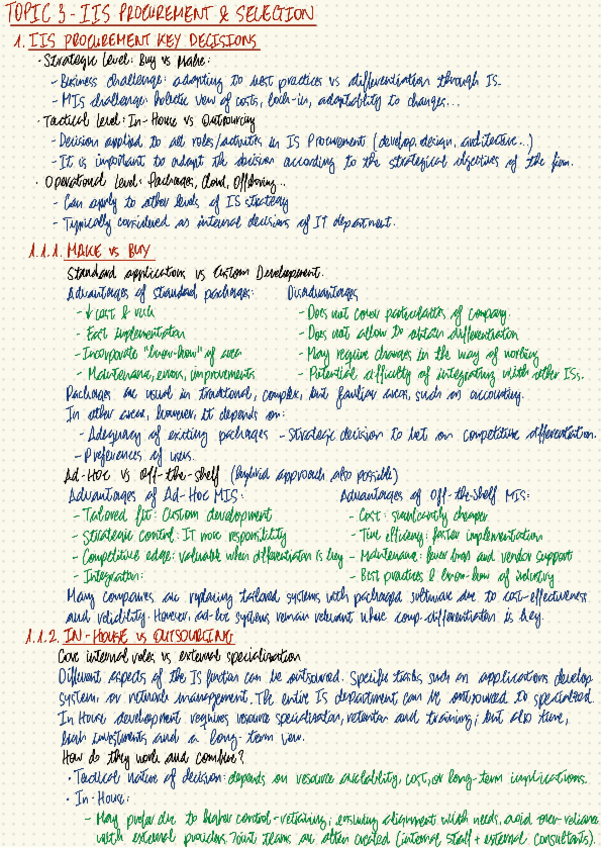 TOPIC 3 - IIS PROCUREMENT & SELECTION
1. IIS PROCUREMENT KEY DECISIONS
· Strategic Level: Buy vs Make:
- Business challenge: adapting to best practices vs differentiation through IS.
- MIS challenge: holistic view of costs, lock-in, adaptability to changes...
· Tactical Level: In-House vs Outsourcing
- Decision applied to all roles/activities in IS Procurement (develop, design, architecture...)
- It is important to adapt the decision according to the strategical objectives of the firm.
· Operational Level: Packages, Cloud, Offshoring...
- Can apply to other levels of IS strategy
- Typically considered as internal decisions of IT department.
1.1.1. MAKE vs BUY
Standard applications vs Custom Development.
Advantages of standard packages: Disadvantages
- ↓ cost & risk - Does not cover particularities of company.
- Fast implementation - Does not allow to obtain differentiation
- Incorporate "know-how" of area - May require changes in the way of working
- Maintenance, errors, improvements - Potential difficulty of integrating with other ISs.
Packages are usual in traditional, complex, but familiar areas, such as accounting.
In other areas, however, it depends on:
- Adequacy of existing packages - Strategic decision to bet on competitive differentiation.
- Preferences of users.
Ad-Hoc vs Off-the-shelf (hybrid approach also possible)
Advantages of Ad-Hoc MIS: Advantages of Off-the-shelf MIS:
- Tailored fit: Custom development - Cost: significantly cheaper
- Strategic control: IT more responsibility - Time efficiency: faster implementation
- Competitive edge: valuable when differentiation is key - Maintenance: fewer bugs and vendor support
- Integration: - Best practices & know-how of industry
Many companies are replacing tailored systems with packaged software due to cost-effectiveness
and reliability. However, ad-hoc systems remain relevant where comp. differentiation is key.
1.1.2. IN-HOUSE vs OUTSOURCING
Core internal roles vs external specialization
Different aspects of the IS function can be outsourced. Specific tasks such as applications develop
system, or network management. The entire IS department can be outsourced to specialized.
In House development requires resource specialization, retention and training; but also time,
fresh investments and a long-term view.
How do they work and combine?
· Tactical nature of decision: depends on resource availability, cost, or long-term implications.
· In-House:
- May prefer due to higher control - retaining; ensuring alignment with needs, avoid over-reliance
with external providers. Joint teams are often created (internal staff + external consultants).